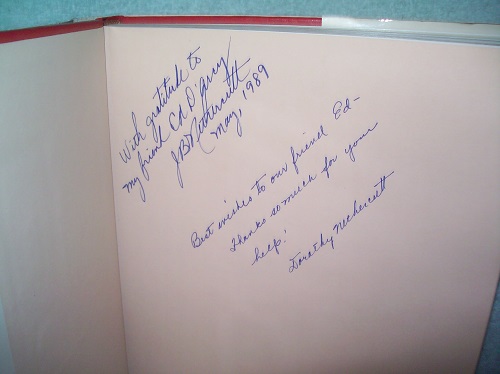 With gratitude to
my friend Ed D'Arcy
JB Nethercutt
May, 1989
Best wishes to our friend Ed-
Thanks so much for your
help!
Dorothy Nethercutt